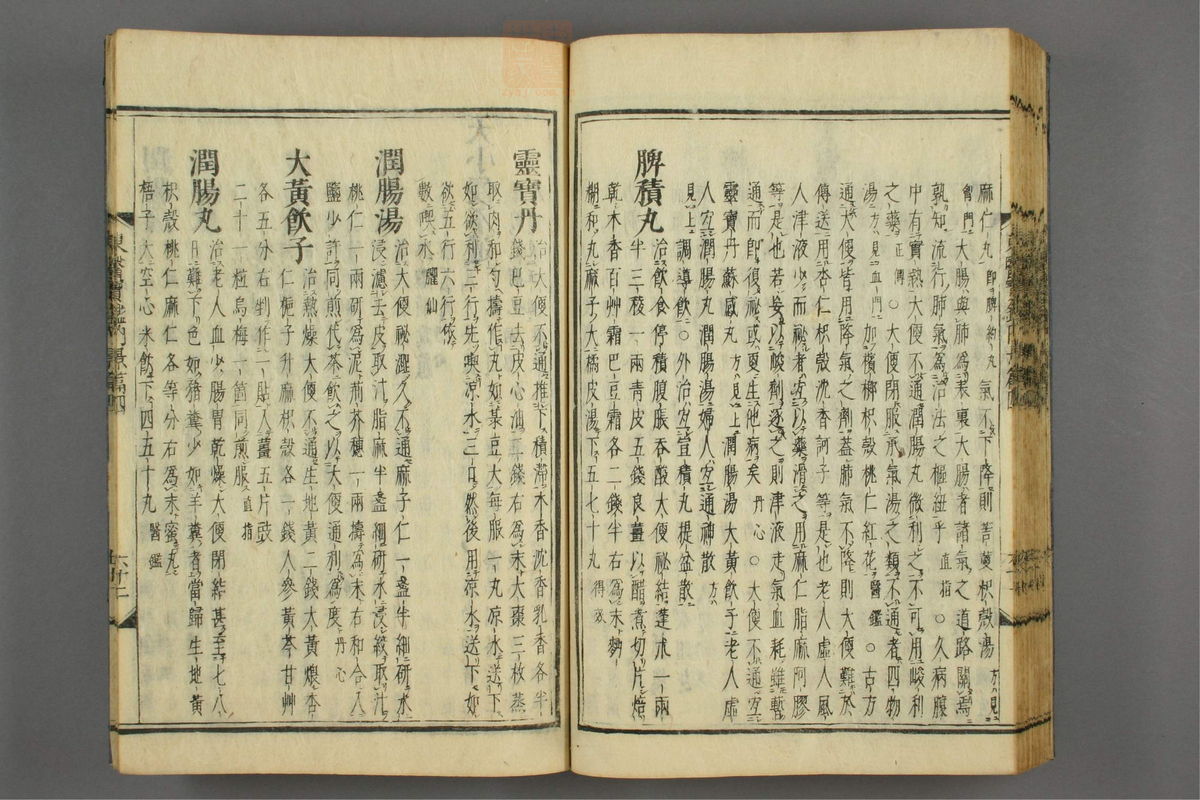 麻仁丸即脾約丸氣不下降則苦䔛枳殼湯方見
脅門大腸與肺爲表裏大腸者諸氣之道路關焉
孰知流行肺氣爲治法之樞紐乎直指○久病腹
中有實熱大便不通潤腸丸微利之不可用峻利
之藥正傳○大便閉服承氣湯之類不通者四物
湯方見血門加檳榔枳殼桃仁紅花醫鑑○古方
通大便皆用降氣之劑蓋肺氣不降則大便難於
傳送用杏仁枳殼沈香訶子等是也老人虛人風
人津液少而祕者宜以藥滑之用麻仁脂麻阿膠
等是也若妄以峻劑逐之則津液走氣血耗雖暫
通而卽復祕或更生他病矣丹心○大便不通宜
靈寶丹蘇感丸方見上潤腸湯大黃飮子老人虛
人宜潤腸丸潤腸湯婦人宜通神散方
見上調導飮○外治宜宣積丸提盆散
脾積丸治飮食停積腹脹呑酸大便祕結蓬朮一兩
半三稜一兩靑皮五錢良薑以醋煮切片焙
乾木香百艸霜巴豆霜各二錢半右爲末麪
糊和丸麻子大橘皮湯下五七十丸得效
靈寶丹治大便不通推下積滯木香沈香乳香各半
錢巴豆去皮心油三錢右爲末大棗三枚蒸
取肉和勻擣作丸如菉豆大每服一丸凉水送下
如欲利三行先㗖凉水三口然後用凉水送下如
欲五行六行依
數喫水臞仙
潤腸湯治大便祕澁久不通麻子仁一盞半細硏水
浸濾去皮取汁脂麻半盞細硏水浸絞取汁
桃仁一兩硏爲泥荊芥穗一兩擣爲末右和合入
鹽少許同煎代茶飮之以大便通利爲度丹心
大黃飮子治熱燥大便不通生地黃二錢大黃煨杏
仁梔子升麻枳殼各一錢人參黃芩甘艸
各五分右剉作一貼入薑五片豉
二十一粒烏梅一箇同煎服直指
潤腸丸治老人血少腸胃乾燥大便閉結甚至七八
日難下色如猪糞少如羊糞者當歸生地黃
枳殼桃仁麻仁各等分右爲末蜜丸
梧子大空心米飮下四五十丸醫鑑